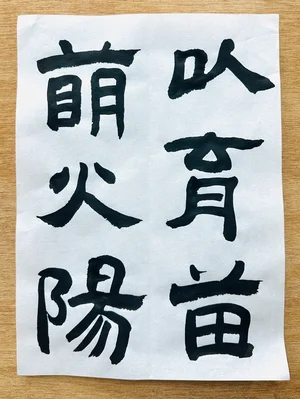 以育苗
萌火陽